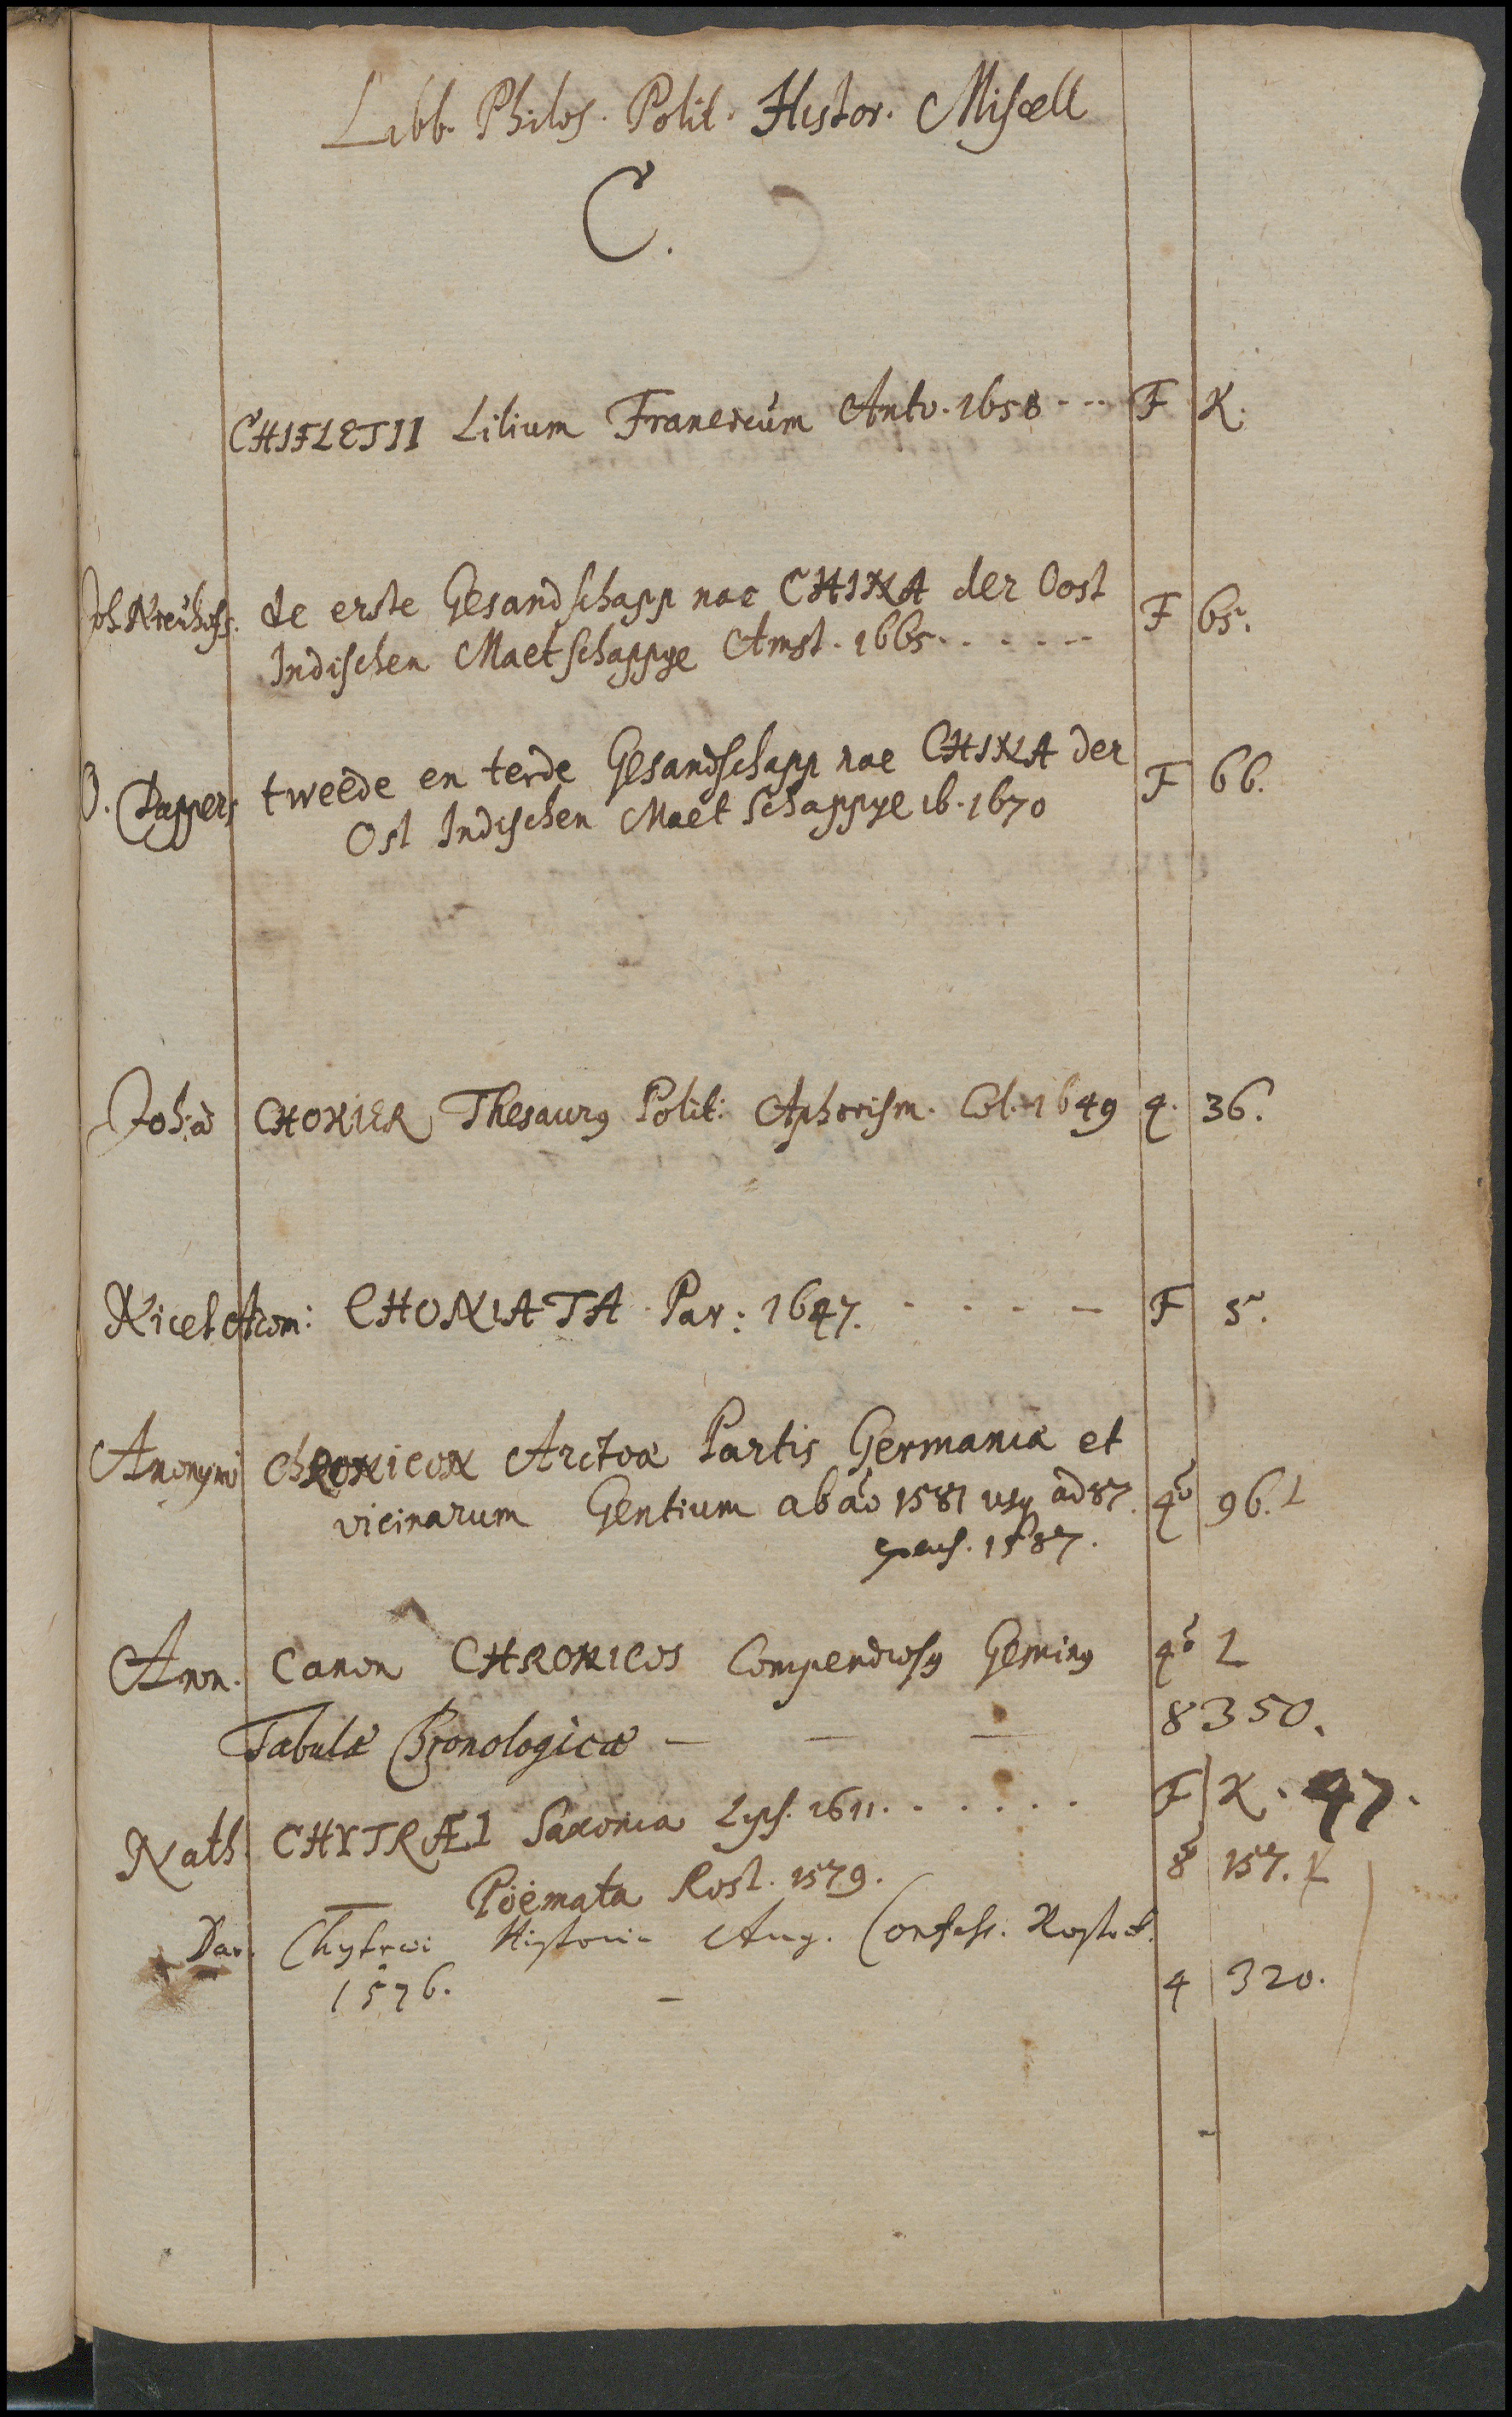 Libb. Philos. Polit. Histor. Miscell
C.
CHIFLETII Lilium Francicum Antv. 1658 --- F K.
Joh. Nieuhoff. de erste Gesandschapp nae CHINA der Oost
Indischen Maetschappye Amst. 1665 . . . . -- F 65.
O. Dappers tweede en terde Gesandschapp nae CHINA der
Ost Indischen Maet Schappye ib. 1670 F 66.
Joh: à CHOKIER Thesaurg Polit: Aphorism. Col. 1649 4. 36.
Nicet Acom: CHONIATA Par: 1647. - - - - F 5.
Anonymi ChRONICON Arctoæ Partis Germaniæ et
vicinarum Gentium ab aō 1581 usq ad 87. 4ō 96. L
1587.
Anon. Canon CHRONICOS Compendiosg Geming 4ō L
Tabulæ Chronologicæ — — — 8 350.
Nath CHYTRÆI Saxonia Lips. 1611. . . . . . . F K. 47.
— Poëmata Rost. 1579. 8 157. K
Dav. Chytræi Historia Aug. Confess. Rostoch.
1576. — 4 320.